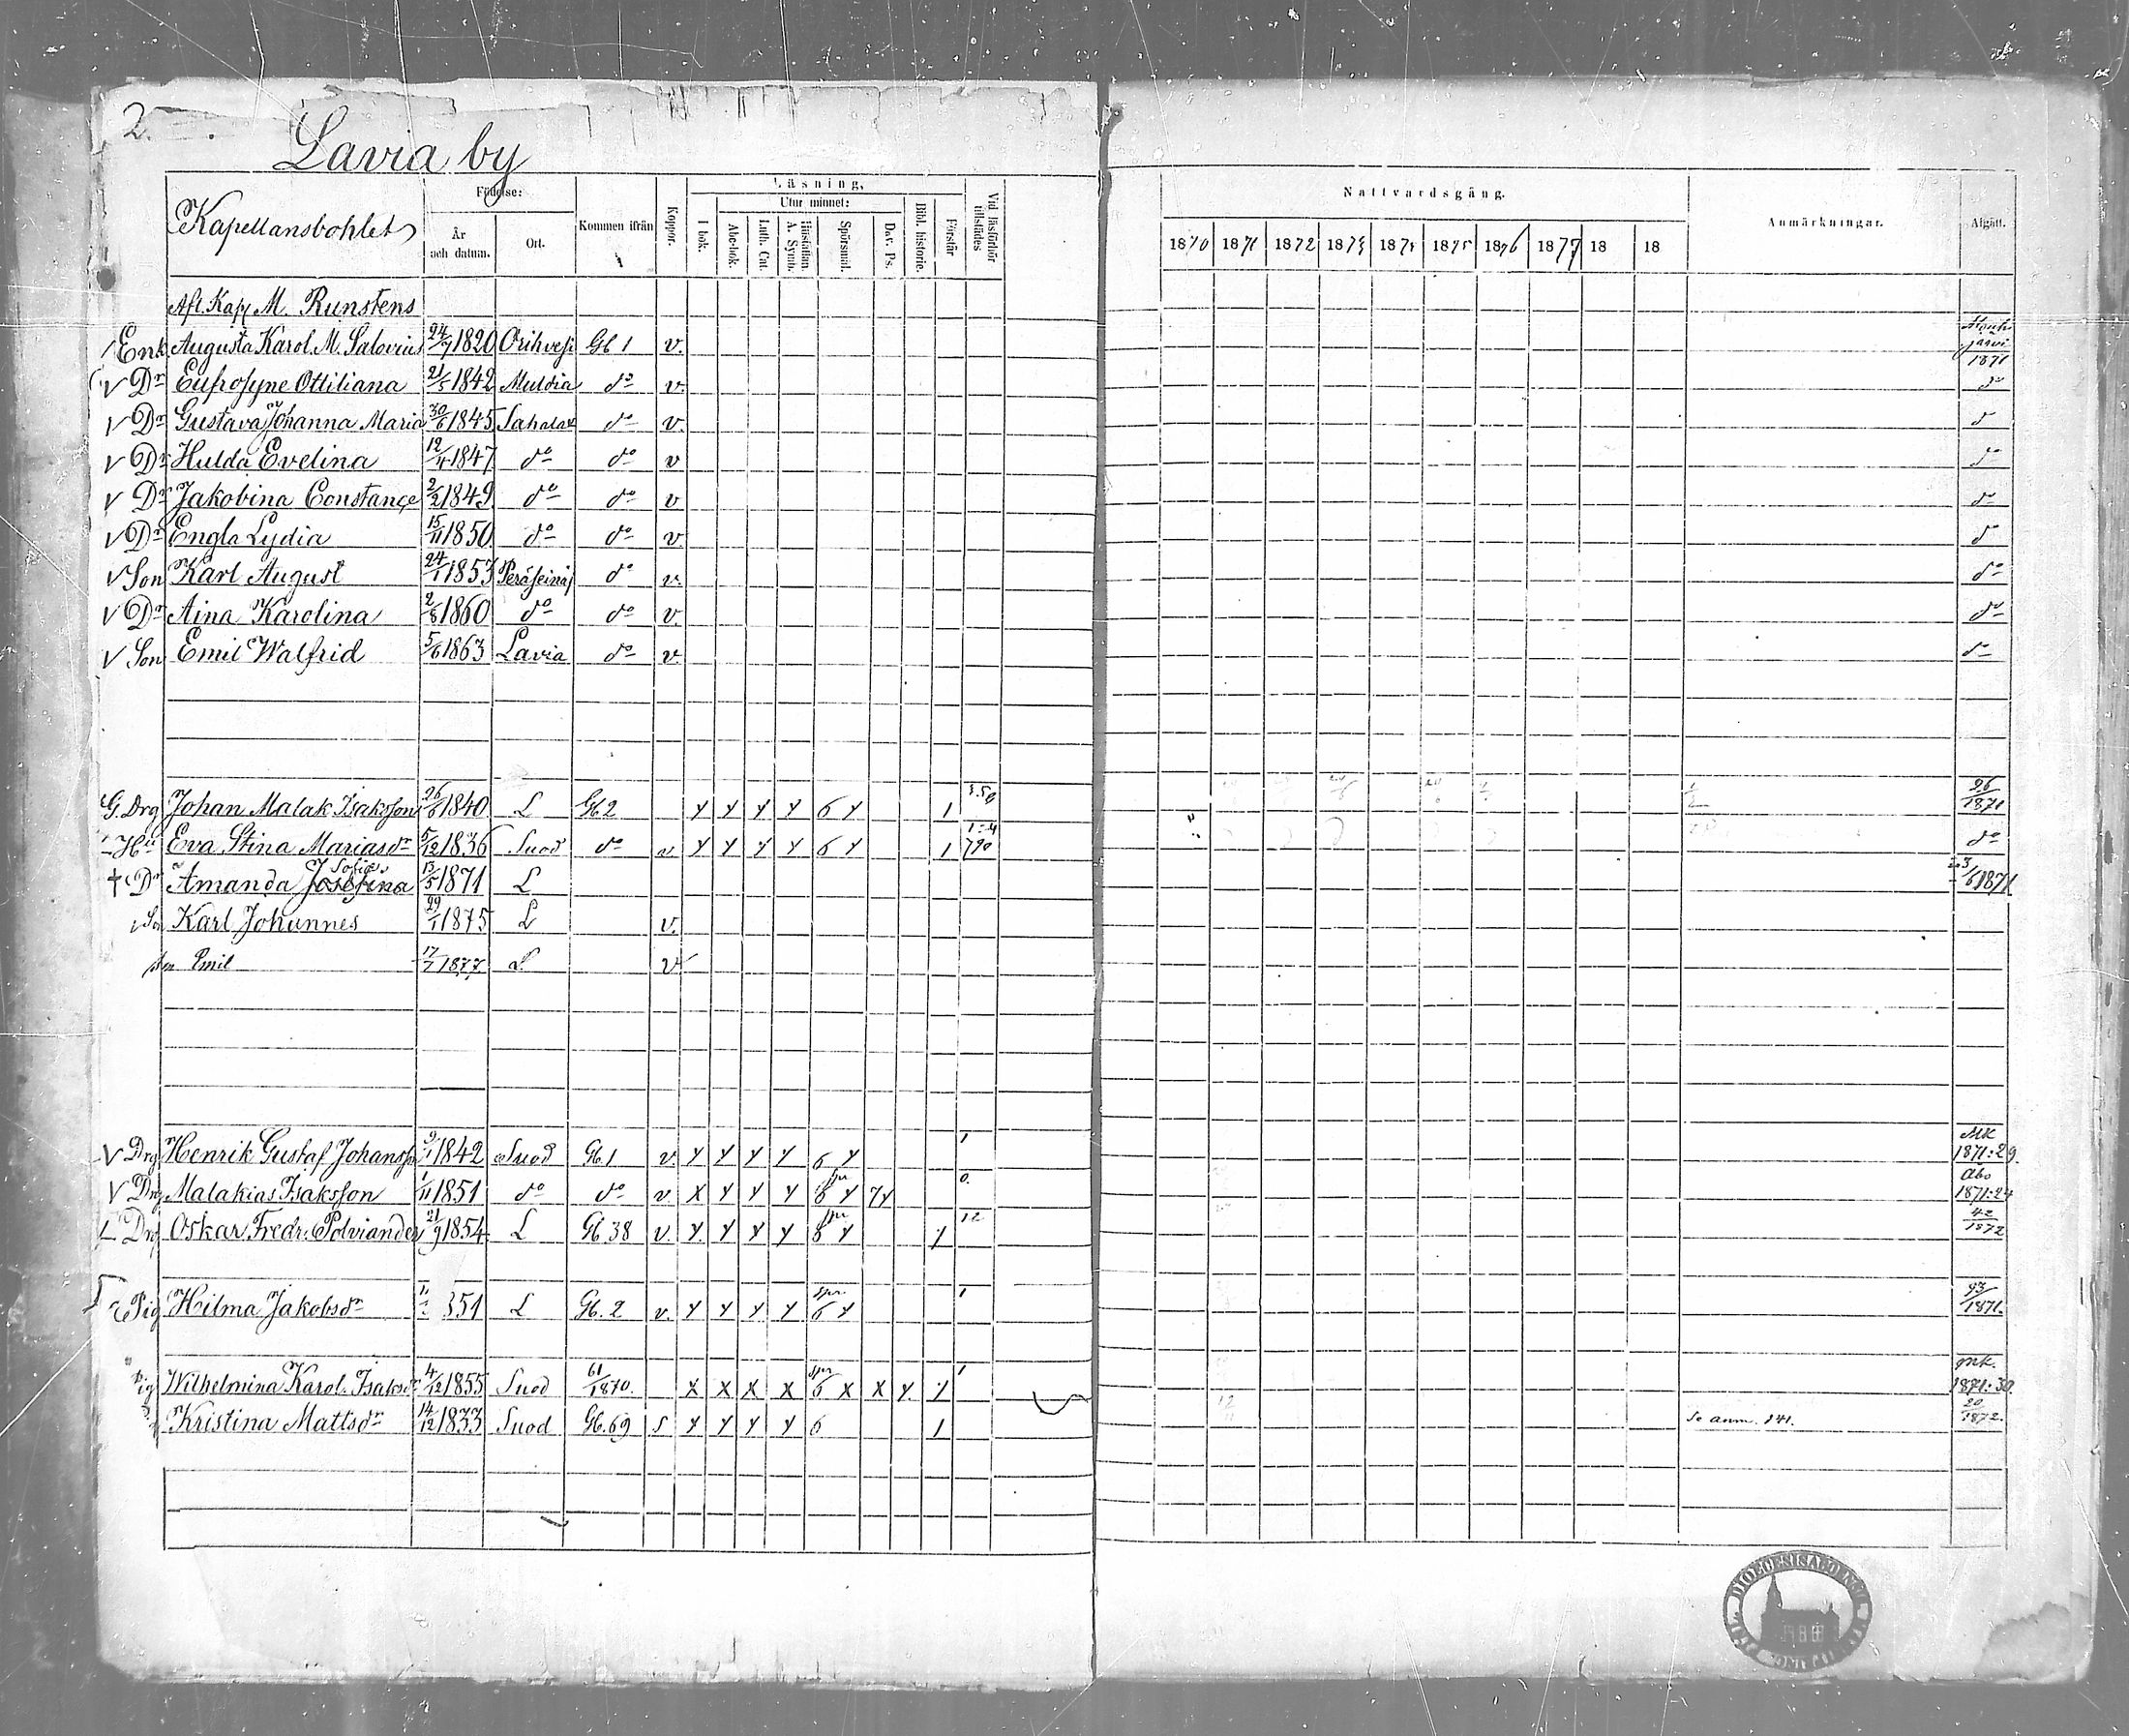 2.
Lavia by
Kapellansbohlet
Födelse:
År och datum.
Ort.
Kommen ifrån
Koppor.
Läsning,
I bok.
Utur minnet:
Abc-bok.
Luth. Cat.
Hustaflan. A. Symb.
Spörsmål.
Dav. Ps.
Bibl. historie.
Förstår
Vid läsförhör tillstädes
Nattvardsgång.
1870 1871 1872 1873 1874 1875 1876 1877 18 18
Anmärkningar.
Afgått.
Afl. Kap. M. Runstens
Enk. Augusta Karol. M. Salovius 24/7 1820 Orihvesi Gb 1 v. 1871
v Dr Eufrosyne Ottiliana 21/5 1842 Multia do v. do
v Dr Gustava Johanna Maria 30/6 1845 Sahalax do v. d
v Dr Hulda Evelina 12/4 1847 do do v do
v Dr Jakobina Constance 2/2 1849 do do v do
v Dr Engla Lydia 15/11 1850 do do v. d
v Son Karl August 24/1 1853 Peräseinäj do v. do
v Dr Aina Karolina 2/8 1860 do do v. do
v Son Emil Walfrid 5/6 1863 Lavia do v. do
G. Drg Johan Malak. Isaksson 26/6 1840 L Gb 2 y y y y 6 y 1 26/1871
Hu Eva Stina Mariasdr 5/12 1836 Suod do v y y y y 6 y 1 do
† Dr Amanda Josefina Sofia 13/5 1871 L 3/6 1871
Son Karl Johannes 29/1 1875 L v.
Son Emil 17/7 1877 L v
v Drg Henrik Gustaf Johansson 1842 Suod Gb 1 v. y y y y 6 y 1 MK 1871:29.
v Drg Malakias Isaksson 1/11 1851 do do v. x y y y 6 y 7y 0. Åbo 1871:24
Drg Oskar Fredr. Polviander 21/9 1854 L Gb 38 v. y y y y 6 y 12 42/1872
Pig Hilma Jakobsdr 851 L Gb. 2 v. y y y y 6 y 1 93/1871.
Pig Wilhelmina Karol. Isaksdr 4/12 1855 Suod 61/1870. x x x x 6 x x y. 1 mk. 1871:30.
Kristina Mattsdr 14/12 1833 Suod Gb. 69 s y y y y 6 1 Se anm. 141. 20/1872.